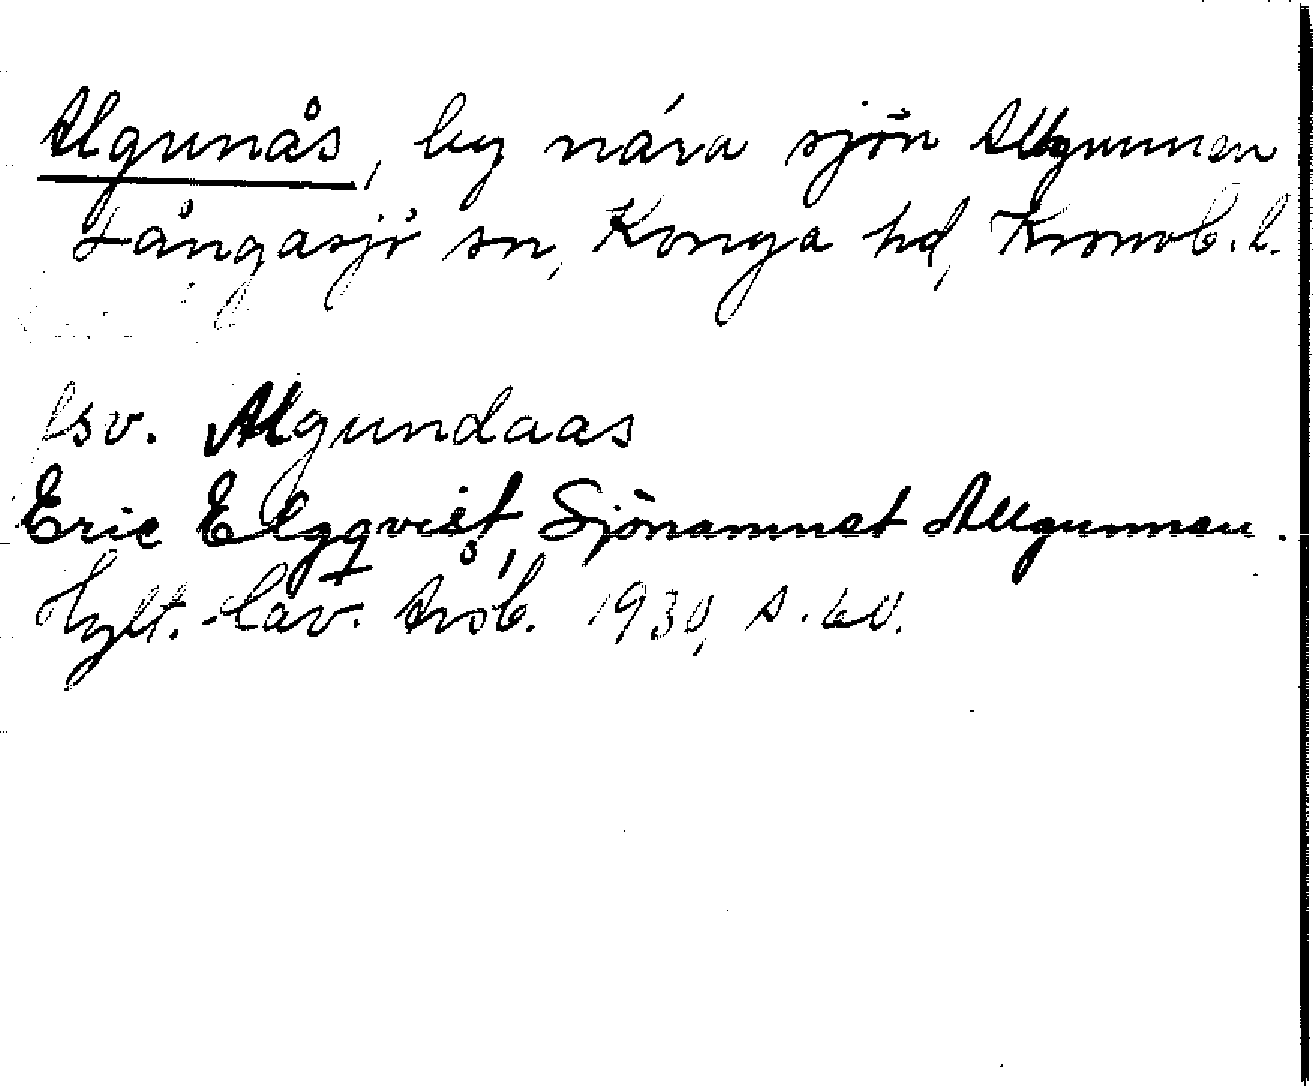 Algunås, by nära sjön Allgunnen
Långasjö sn, Konga hd, Kronob. l.
fsv. Algundaas
Eric Elgqvist, Sjönamnet Allgunnen.
Hylt.-Cav. årsb. 1930, s. 60.